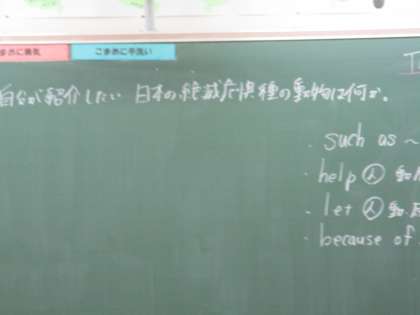 こまめに換気
こまめに手洗い
自分が紹介したい 日本の絶滅危惧種の動物は何か。
・such as ~
・help 人 動
・let 人 動
・because of